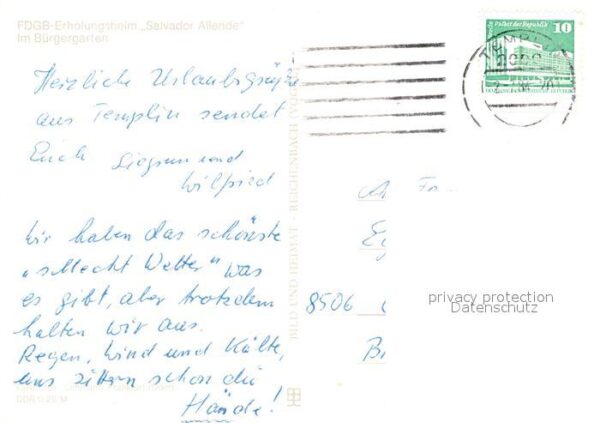 FDGB-Erholungsheim „Salvador Allende"
Im Bürgergarten
Herzliche Urlaubsgrüße
aus Templin sendet
Euch Siegrun und
Wilfried
Wir haben das schönste
„schlecht Wetter" was
es gibt, aber trotzdem
halten wir aus.
Regen, Wind und Kälte,
uns zittern schon die
Hände!
BILD UND HEIMAT · REICHENBACH
Palast der Republik
10
TEMPLIN
8506
privacy protection
Datenschutz